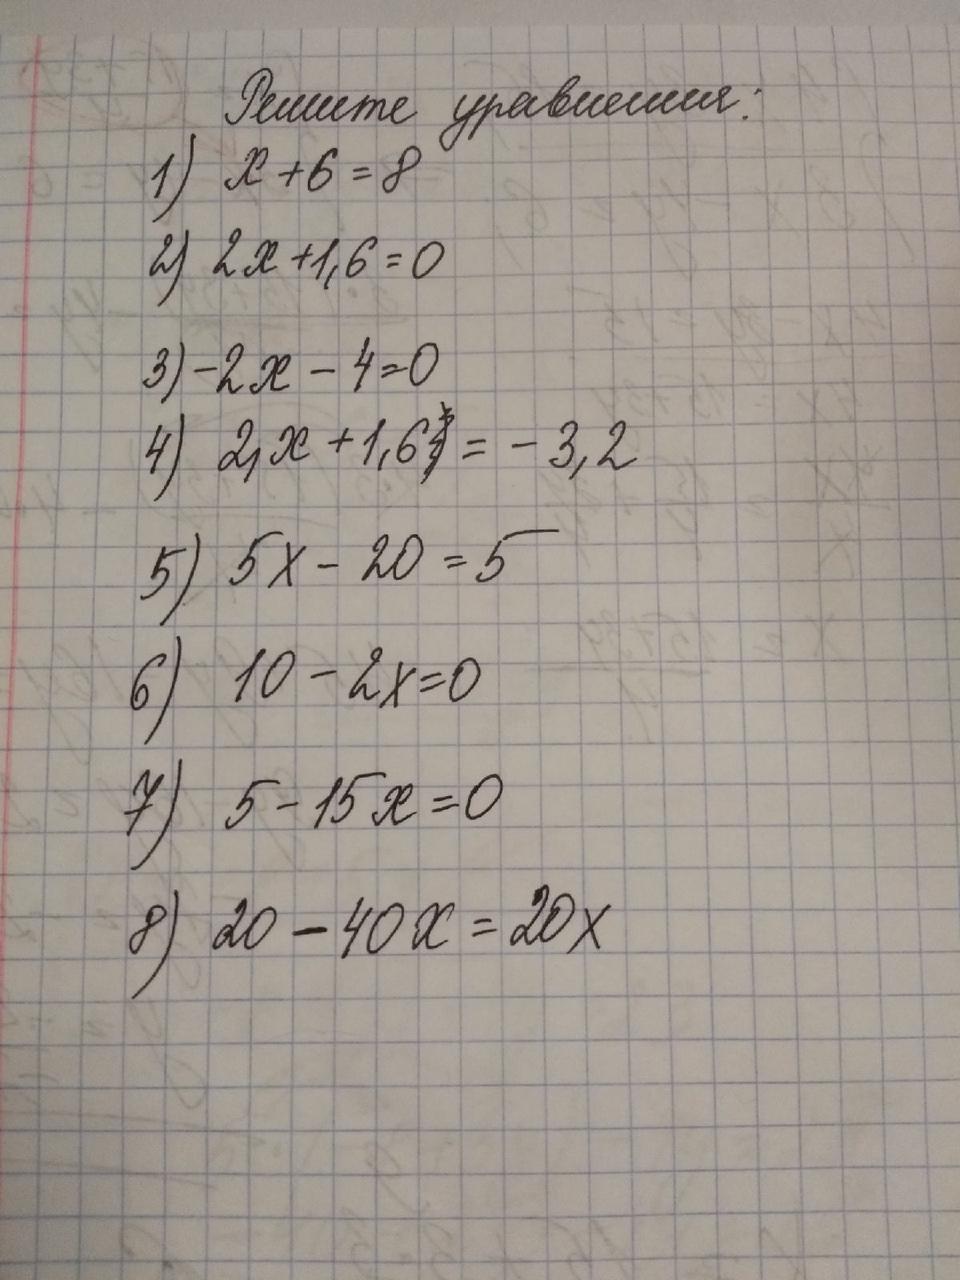 Решите уравнения:
1) x + 6 = 8
2) 2x + 1,6 = 0
3) -2x - 4 = 0
4) 2,x + 1,6 = - 3,2
5) 5x - 20 = 5
6) 10 - 2x = 0
7) 5 - 15x = 0
8) 20 - 40x = 20x